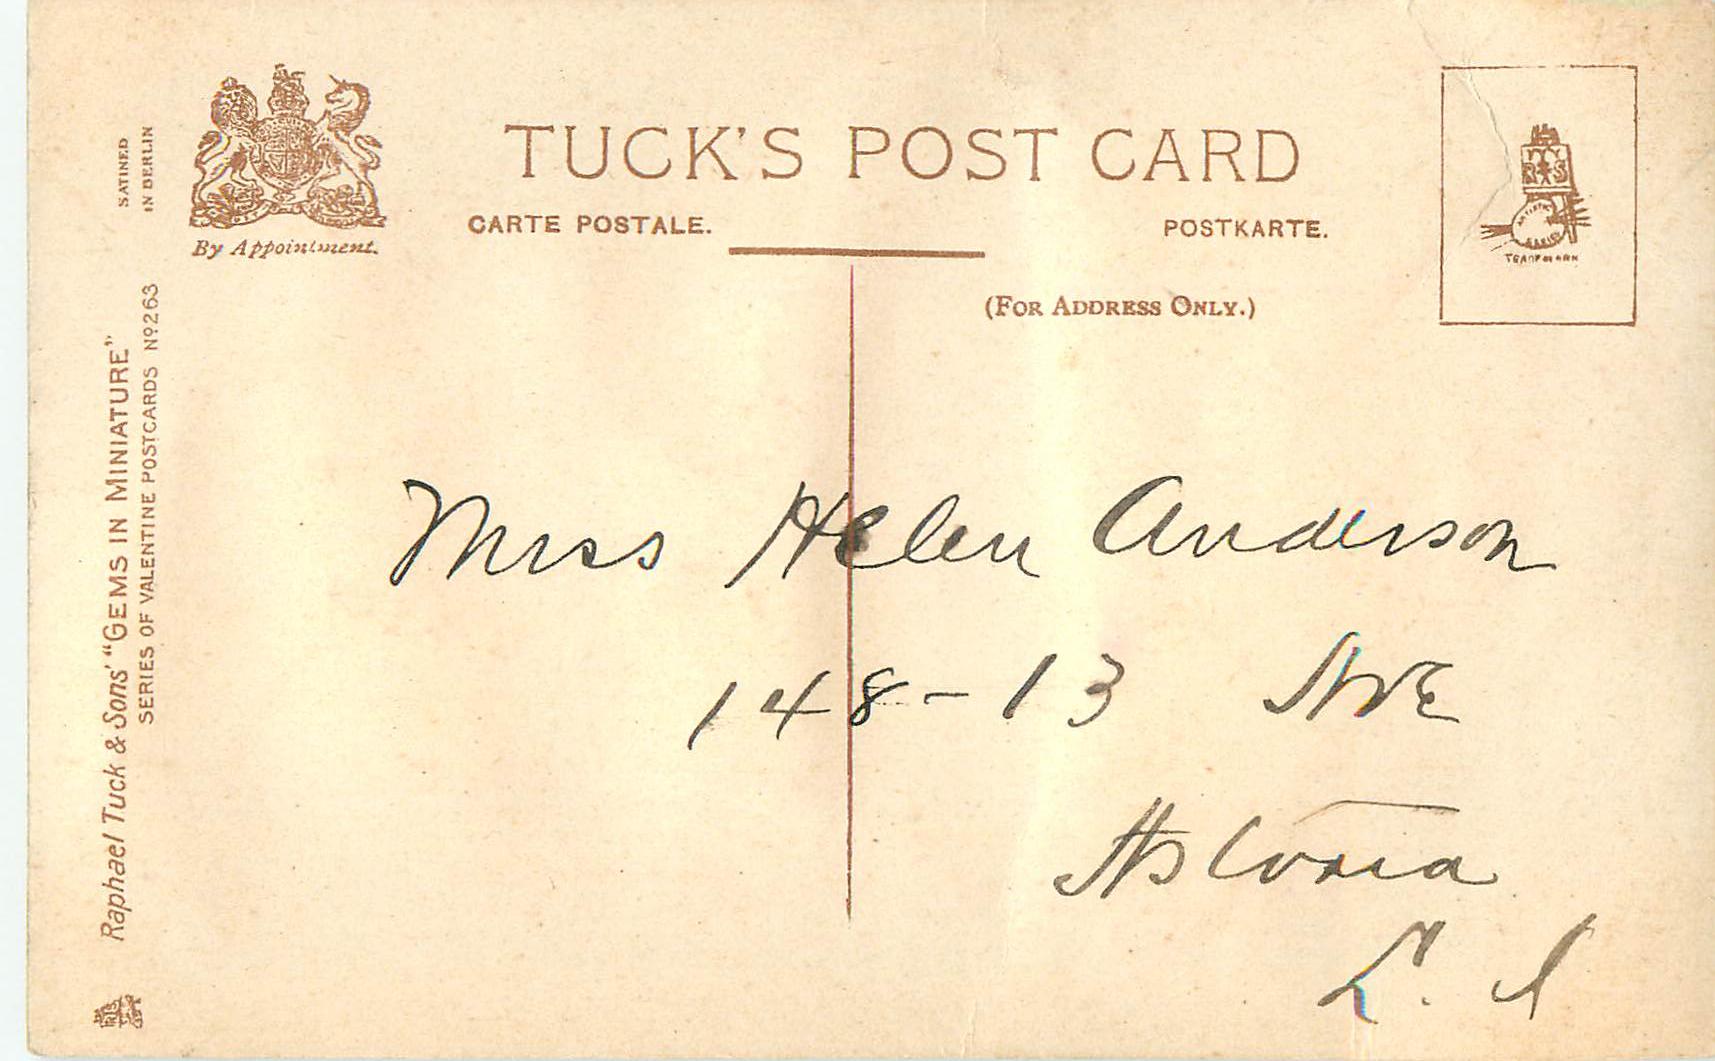 SATINED
IN BERLIN
By Appointment.
TUCK'S POST CARD
CARTE POSTALE.
POSTKARTE.
(FOR ADDRESS ONLY.)
R T S
ARTISTIC
SERIES
TRADE MARK
Raphael Tuck & Sons' "GEMS IN MINIATURE"
SERIES OF VALENTINE POSTCARDS Nº 263
Miss Helen Anderson
148-13 AVE
Astoria
L. I